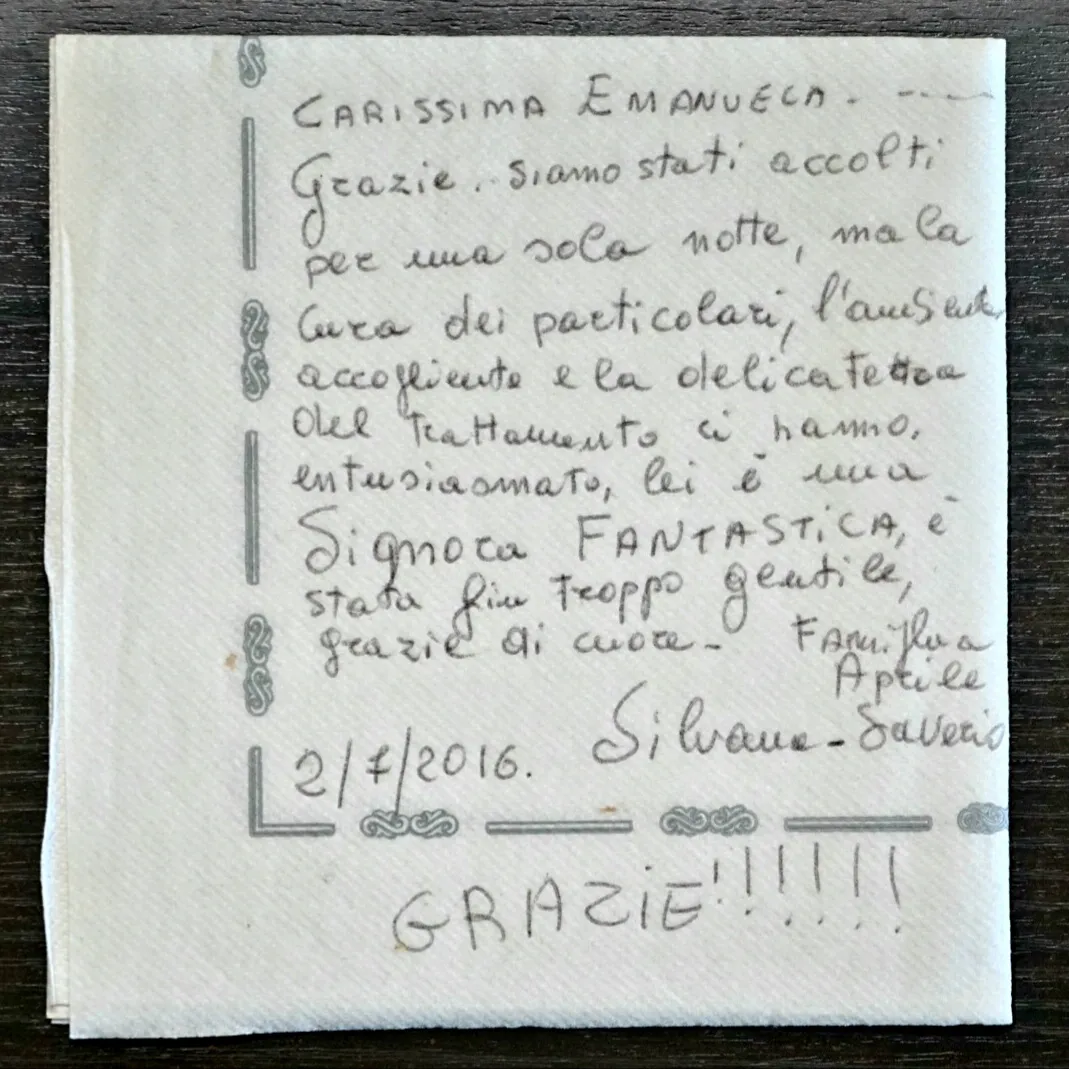 CARISSIMA EMANUELA. ----
Grazie. siamo stati accolti
per una sola notte, ma la
Cura dei particolari, l'ambiente
accogliente e la delicatezza
del trattamento ci hanno.
entusiasmato, lei è una
Signora FANTASTiCA, è
stata fin troppo gentile,
grazie di cuore- FAmiglia
Aprile
Silvana-Saverio
2/7/2016.
GRAZiE!!!!!!!